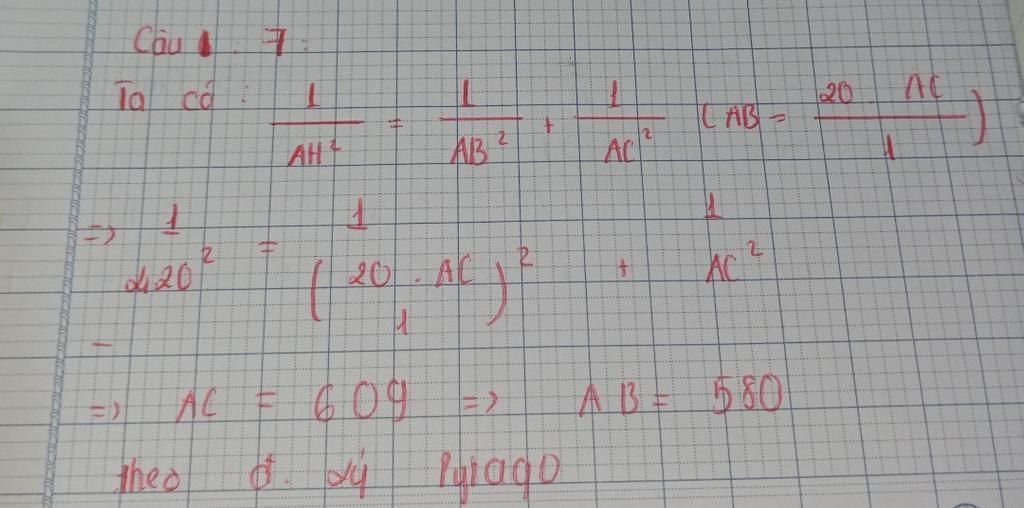 Câu 1 : 7 :
Ta có : 1/AH² = 1/AB² + 1/AC² ( AB = 20 AC/1 )
=> 1/420² = 1/( 20 . AC/1 )² + 1/AC²
-
=> AC = 609 => AB = 580
theo đ. lý Pytago